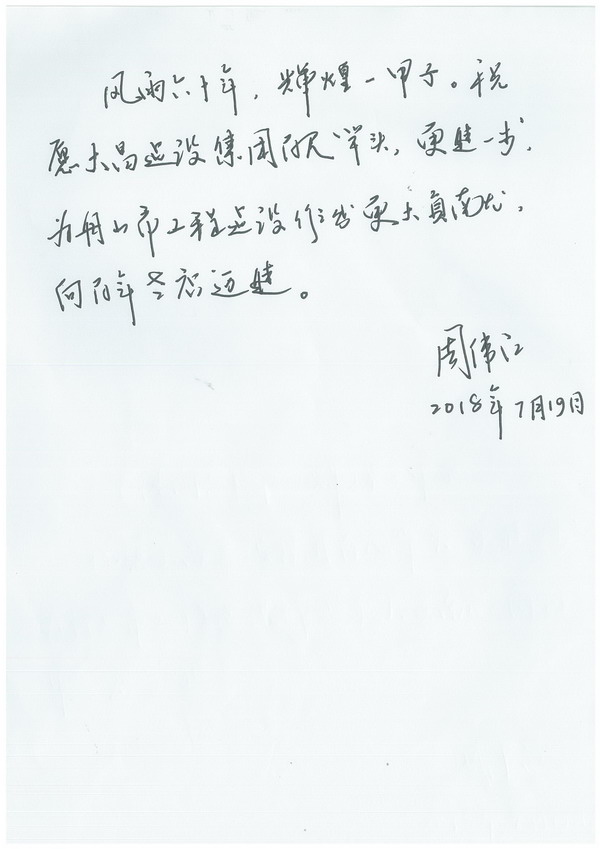 风雨六十年，辉煌一甲子。祝
愿大昌建设集团百尺竿头，更进一步，
为舟山市工程建设作出更大贡献，
向百年老店迈进。
周伟江
2018年7月19日